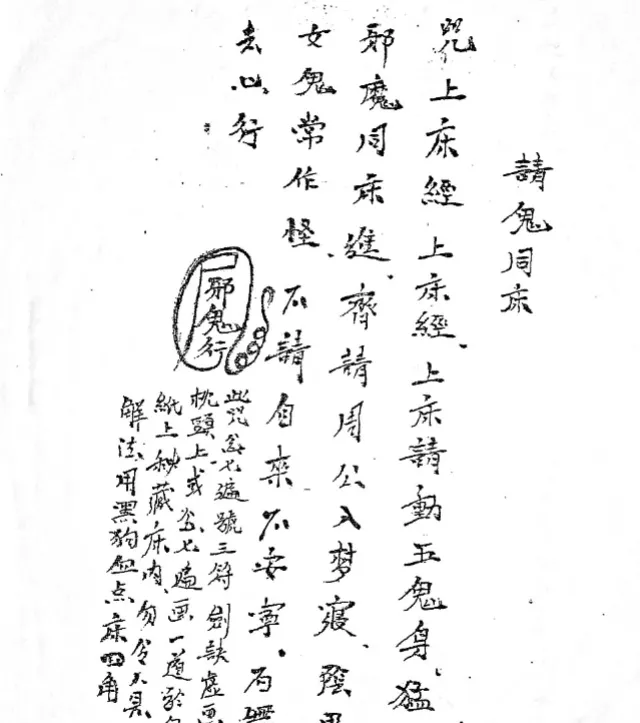 請鬼同床
咒上床經上床經、上床請動五鬼身、猛
邪魔同床進、齊請周公入梦寢、陰
女鬼常作怪、不請自來不安寧、
去心行
邪鬼行
此咒念七遍號三符剑訣虛画
枕頭上或念七遍画一道於
紙上秘藏床内、勿令人見
解法用黑狗血点床四角